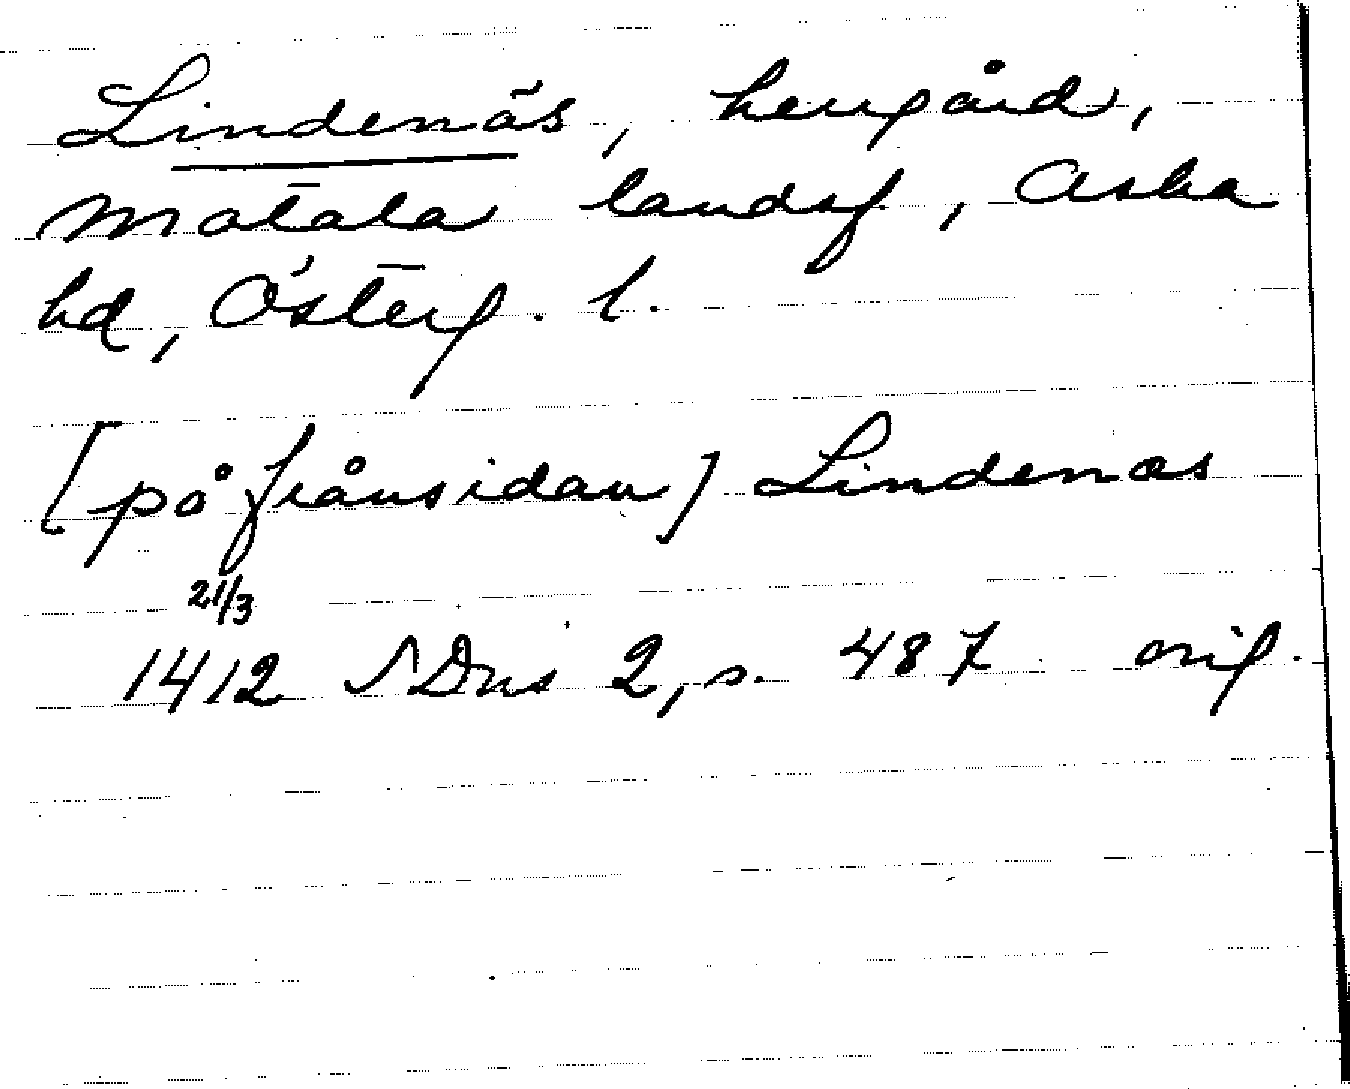 Lindenäs, herrgård,
Motala landsf, Aska
hd, Österg. l.
[på frånsidan] Lindenæs
21/3
1412 SDns 2, s. 487 orig.